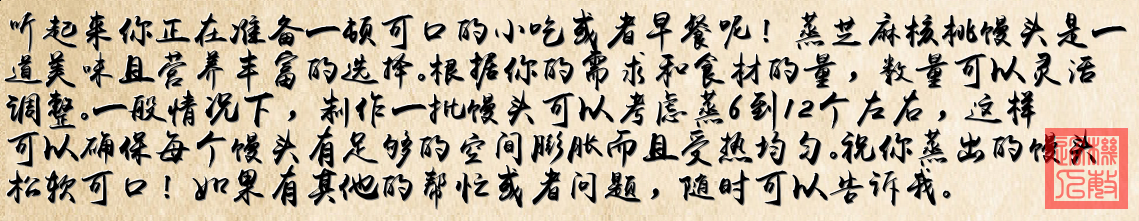 听起来你正在准备一顿可口的小吃或者早餐呢！蒸芝麻核桃馒头是一
道美味且营养丰富的选择。根据你的需求和食材的量，数量可以灵活
调整。一般情况下，制作一批馒头可以考虑蒸6到12个左右，这样
可以确保每个馒头有足够的空间膨胀而且受热均匀。祝你蒸出的馒头
松软可口！如果有其他的帮忙或者问题，随时可以告诉我。